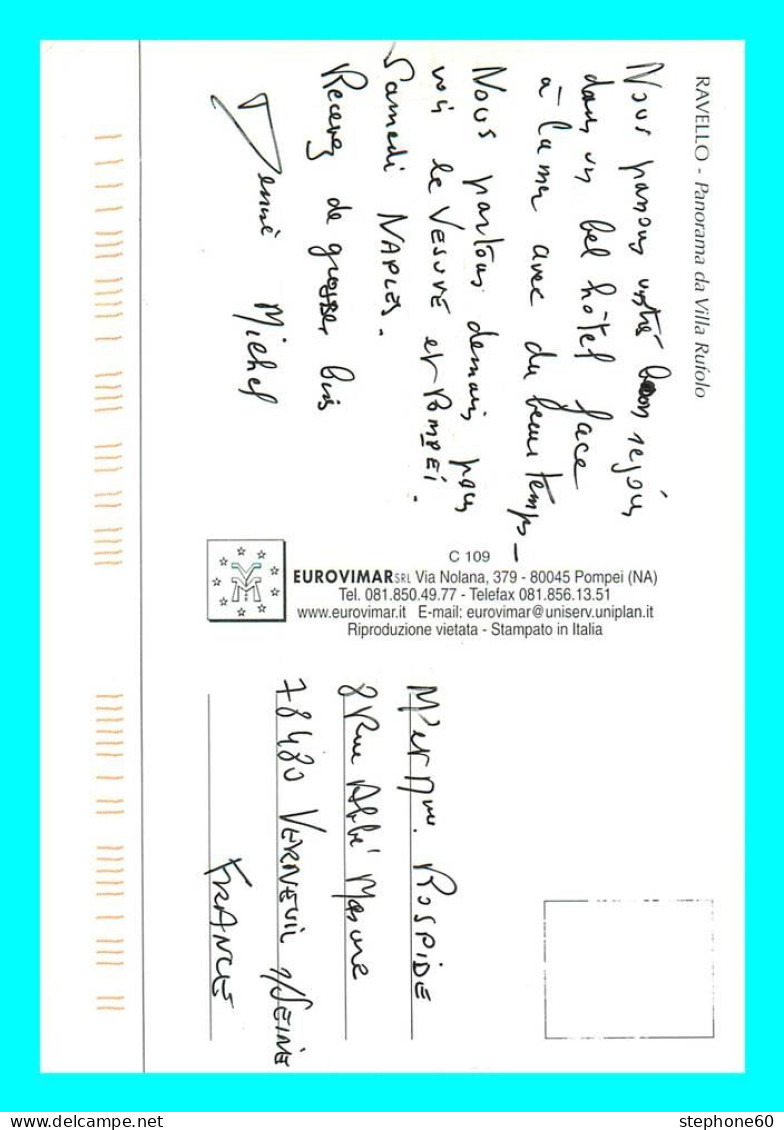 RAVELLO - Panorama da Villa Rufolo
Nous passons un très bon séjour
dans un bel hôtel face
à la mer avec du beau temps -
Nous partons demain pour
voir le VESUVE et POMPEÏ.
Samedi NAPLES.
Recevez de grosses bises
Michel
C 109
EUROVIMAR SRL Via Nolana, 379 - 80045 Pompei (NA)
Tel. 081.850.49.77 - Telefax 081.856.13.51
www.eurovimar.it E-mail: eurovimar@uniserv.uniplan.it
Riproduzione vietata - Stampato in Italia
VM
Mr et Mme. ROSPIDE
8 Rue Abbé Masure
78480 VERNEUIL s/SEINE
FRANCE
stephone60